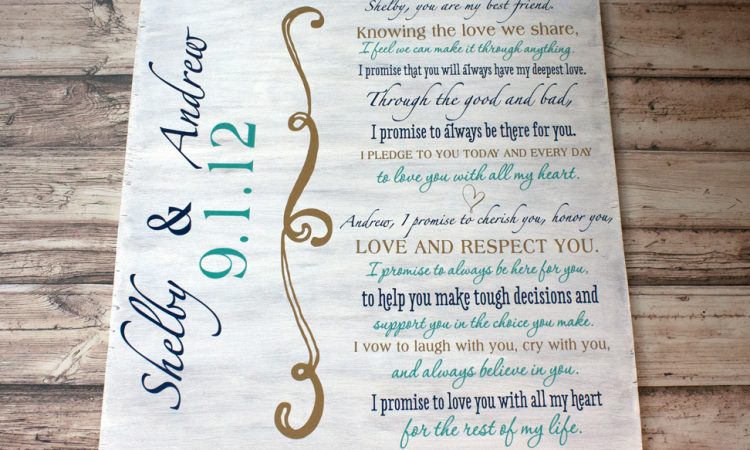 Shelby & Andrew
9.1.12
Shelby, you are my best friend.
Knowing the love we share,
I feel we can make it through anything.
I promise that you will always have my deepest love.
Through the good and bad,
I promise to always be there for you.
I PLEDGE TO YOU TODAY AND EVERY DAY
to love you with all my heart.
Andrew, I promise to cherish you, honor you,
LOVE AND RESPECT YOU.
I promise to always be here for you,
to help you make tough decisions and
support you in the choice you make.
I vow to laugh with you, cry with you,
and always believe in you.
I promise to love you with all my heart
for the rest of my life.